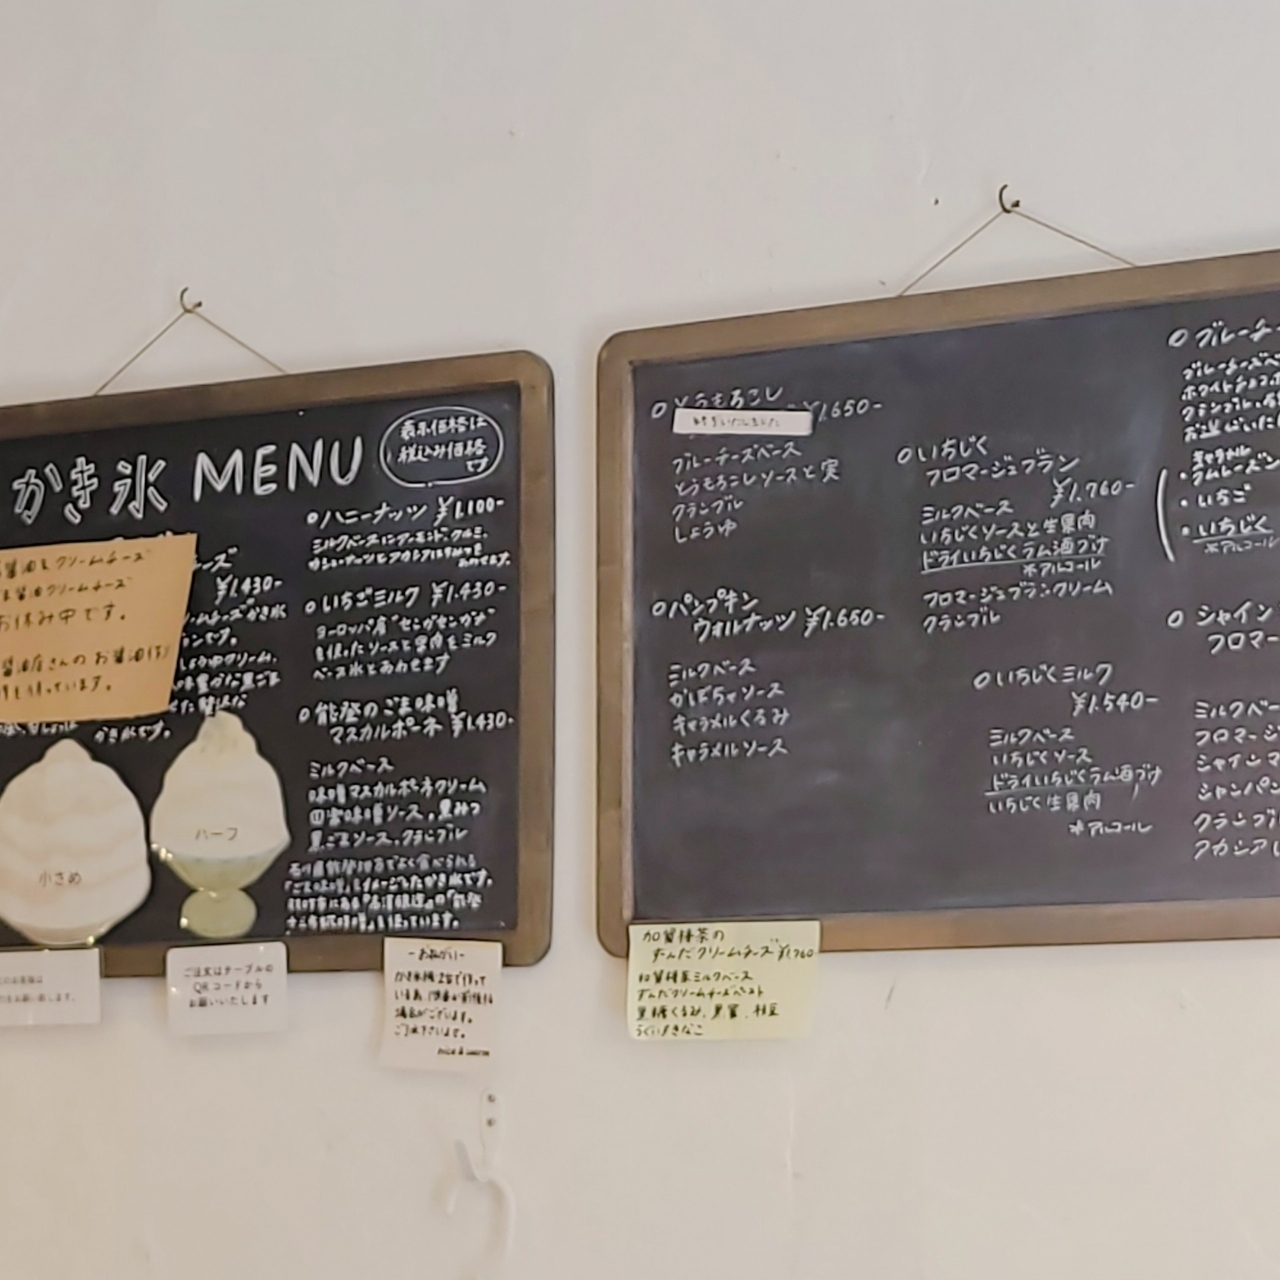 かき氷 MENU
表示価格は
税込み価格
です
ーズ
¥1,430-
お休み中です。
かき氷です。
小さめ
ハーフ
ハニーナッツ ¥1,100-
いちごミルク ¥1,430-
ヨーロッパ産"センガセンガナ"
を使ったソースと果肉をミルク
ベース氷とあわせます
能登のごま味噌
マスカルポーネ ¥1,430-
ミルクベース
味噌マスカルポーネクリーム
黒ごまソース、クランブル
ご注文はテーブルの
QRコードから
お願いいたします
-お願い-
かき氷機2台で作って
いる為、順番が前後する
場合がございます。
ご了承下さいませ。
とうもろこし
¥1,650-
終了いたしました
ブルーチーズベース
とうもろこしソースと実
クランブル
しょうゆ
パンプキン
ウォルナッツ ¥1,650-
ミルクベース
かぼちゃソース
キャラメルくるみ
キャラメルソース
加賀棒茶の
ずんだクリームチーズ ¥1,760-
加賀棒茶ミルクベース
ずんだクリームチーズペースト
黒糖くるみ、黒蜜、枝豆
うぐいすきなこ
いちじく
フロマージュブラン
¥1,760-
ミルクベース
いちじくソースと生果肉
ドライいちじくラム酒づけ
*アルコール
フロマージュブランクリーム
クランブル
いちじくミルク
¥1,540-
ミルクベース
いちじくソース
ドライいちじくラム酒づけ
いちじく生果肉
*アルコール
ブルーチー
ブルーチーズベ
キャラメル
・ラムレーズン
・いちご
・いちじく
*アルコール
シャイン
フロマー
ミルクベー
フロマージ
シャインマ
シャンパン
クランブ
アカシア